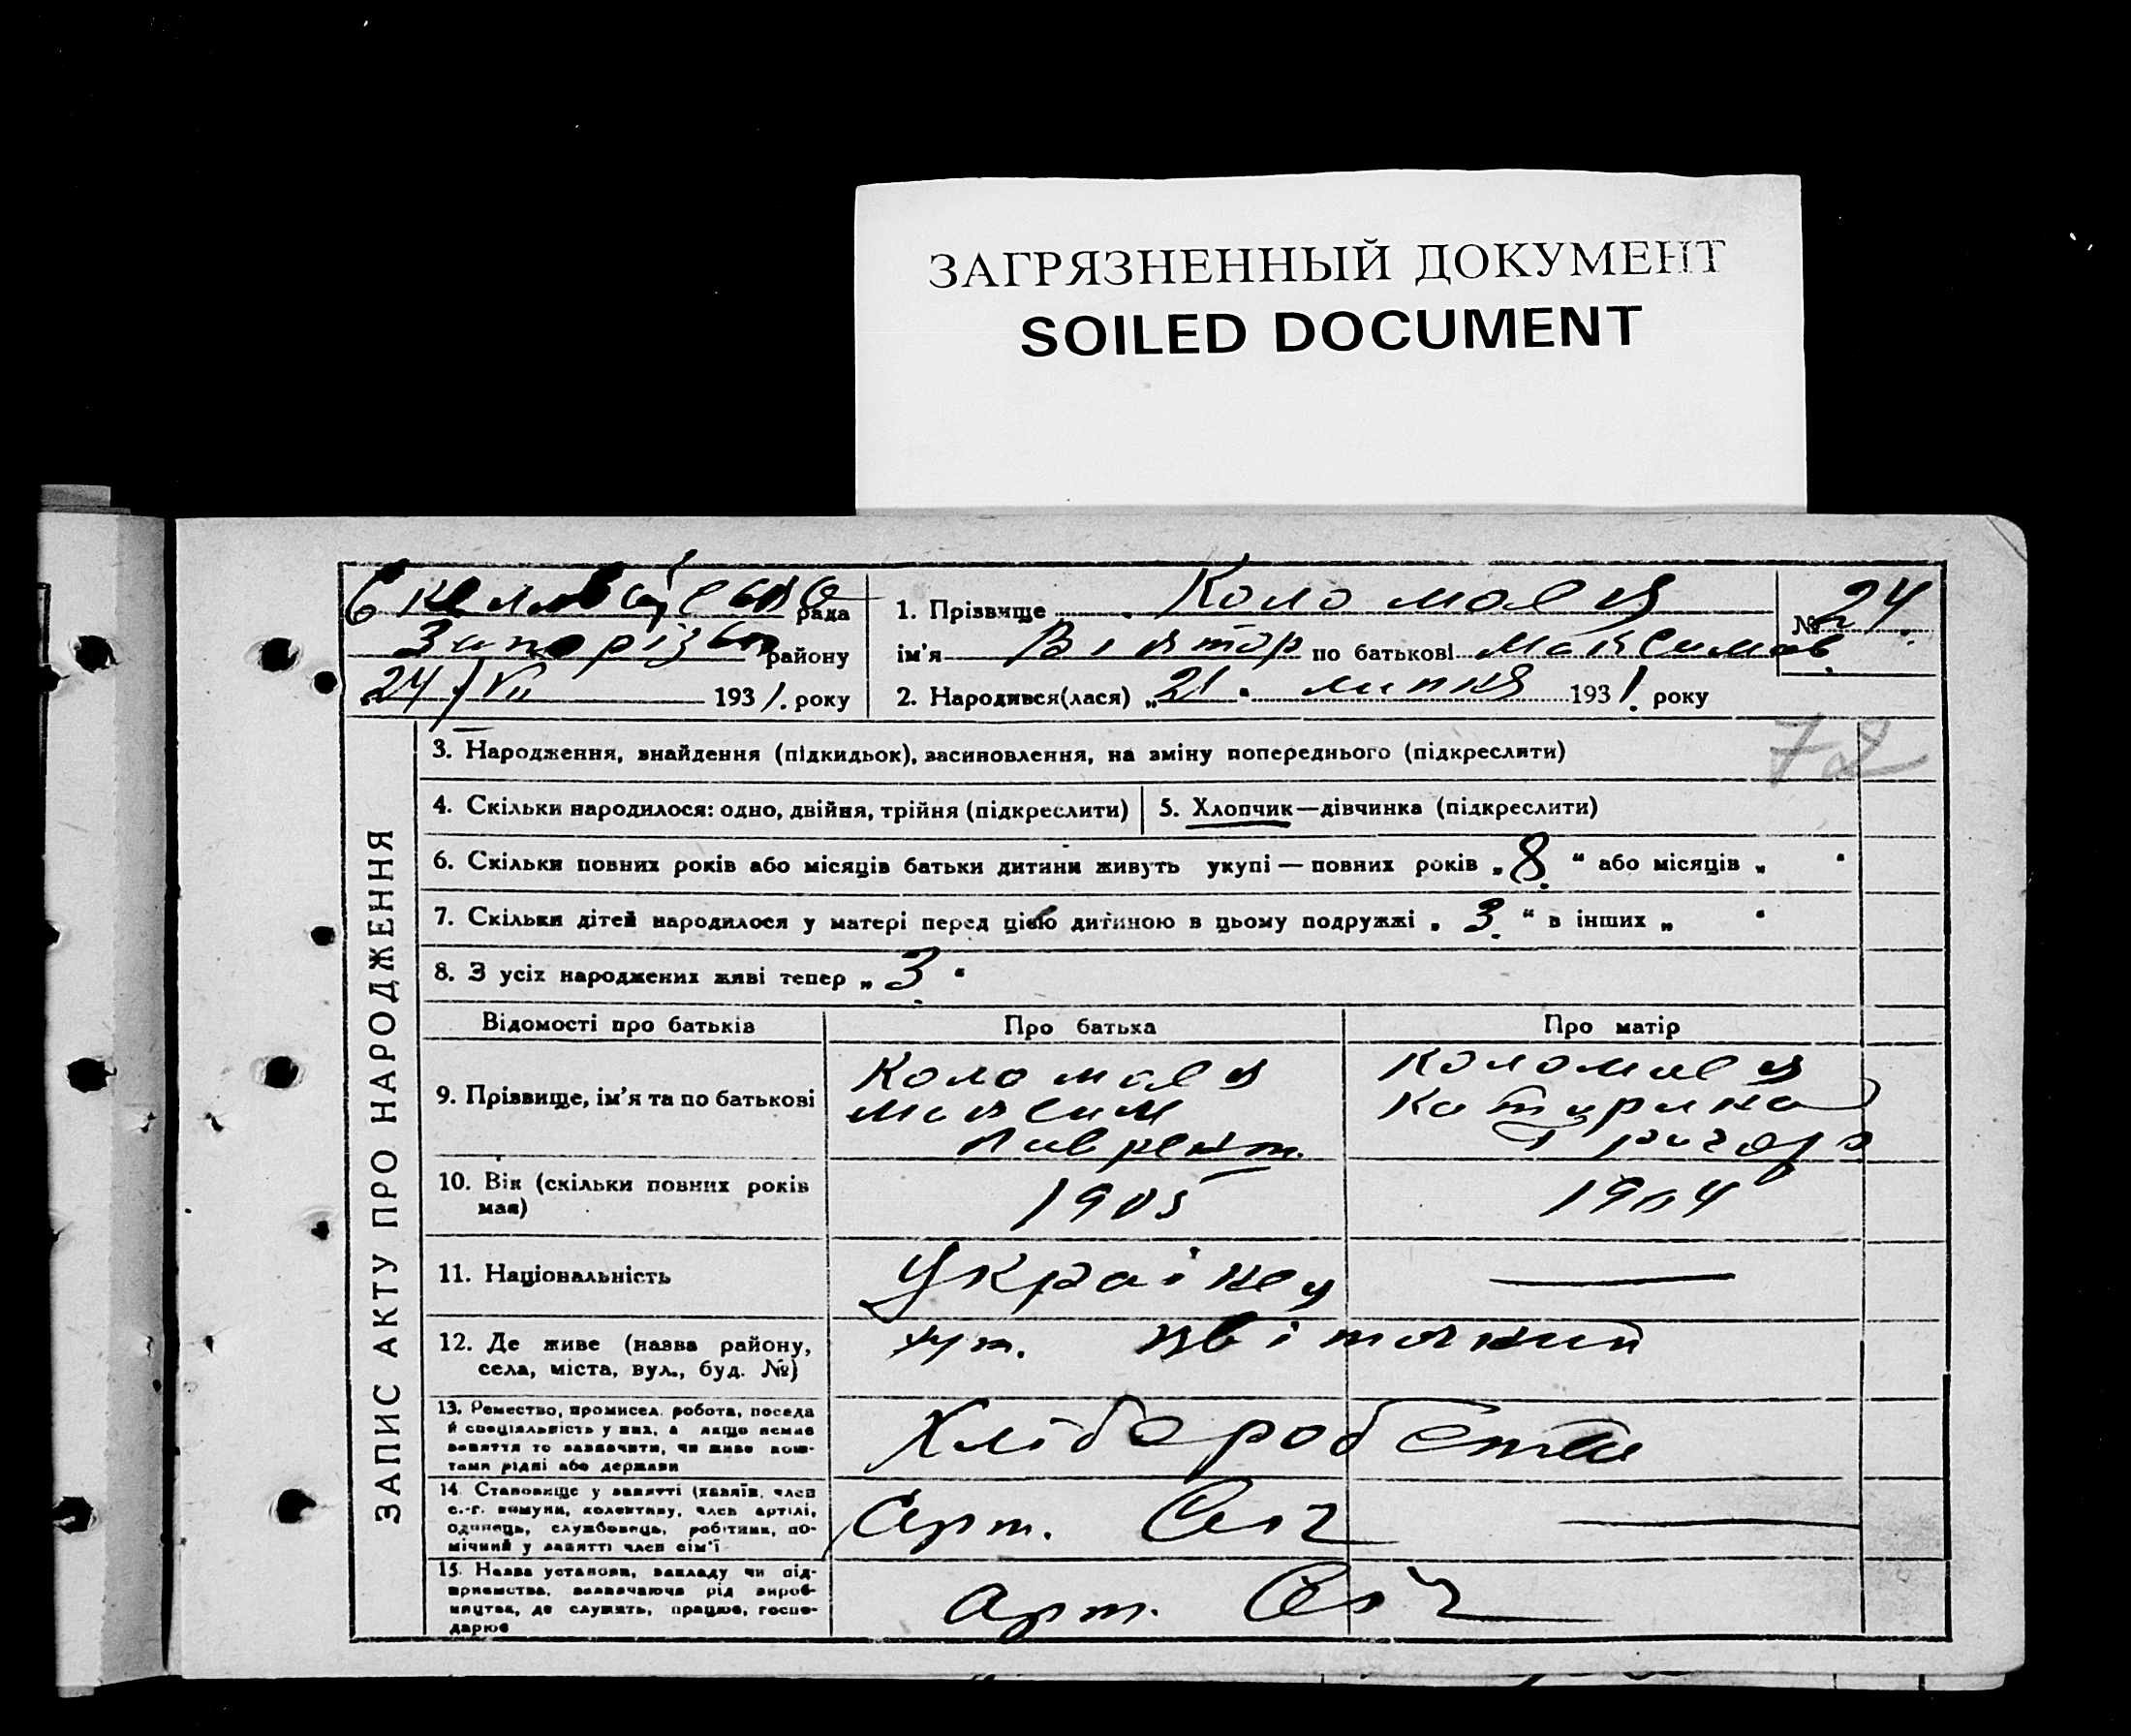 ЗАГРЯЗНЕННЫЙ ДОКУМЕНТ
SOILED DOCUMENT
рада
Запорізьк району
24/VII 1931. року
1. Прізвище Коломоєць
№ 24.
ім'я Віктор по батькові Максимов.
2. Народився(лася) „21" липня 1931. року
72
ЗАПИС АКТУ ПРО НАРОДЖЕННЯ
3. Народження, знайдення (підкидьок), засиновлення, на зміну попереднього (підкреслити)
4. Скільки народилося: одно, двійня, трійня (підкреслити)
5. Хлопчик—дівчинка (підкреслити)
6. Скільки повних років або місяців батьки дитини живуть укупі — повних років „8." або місяців „ "
7. Скільки дітей народилося у матері перед цією дитиною в цьому подружжі „3." в інших „ "
8. З усіх народжених живі тепер „3"
Відомості про батьків
Про батька
Про матір
9. Прізвище, ім'я та по батькові
Коломоєць
Максим
Лаврент.
Коломоєць
Катерина
Григор
10. Вік (скільки повних років
має)
1905
1904
11. Національність
Українец
12. Де живе (назва району,
села, міста, вул., буд. №)
хут.
13. Ремество, промисел, робота, посада
й спеціяльність у них, а якщо немає
заняття то зазначити, чи живе кош-
тами рідні або держави
Хлібороб
14. Становище у занятті (хазяїн, член
с.-г. комуни, колективу, член артілі,
одинець, службовець, робітник, по-
мічний у занятті член сім'ї
Арт. Січ
15. Назва установи, закладу чи під-
приємства, зазначаючи рід вироб-
ництва, де служить, працює, госпо-
дарює
Арт. Січ